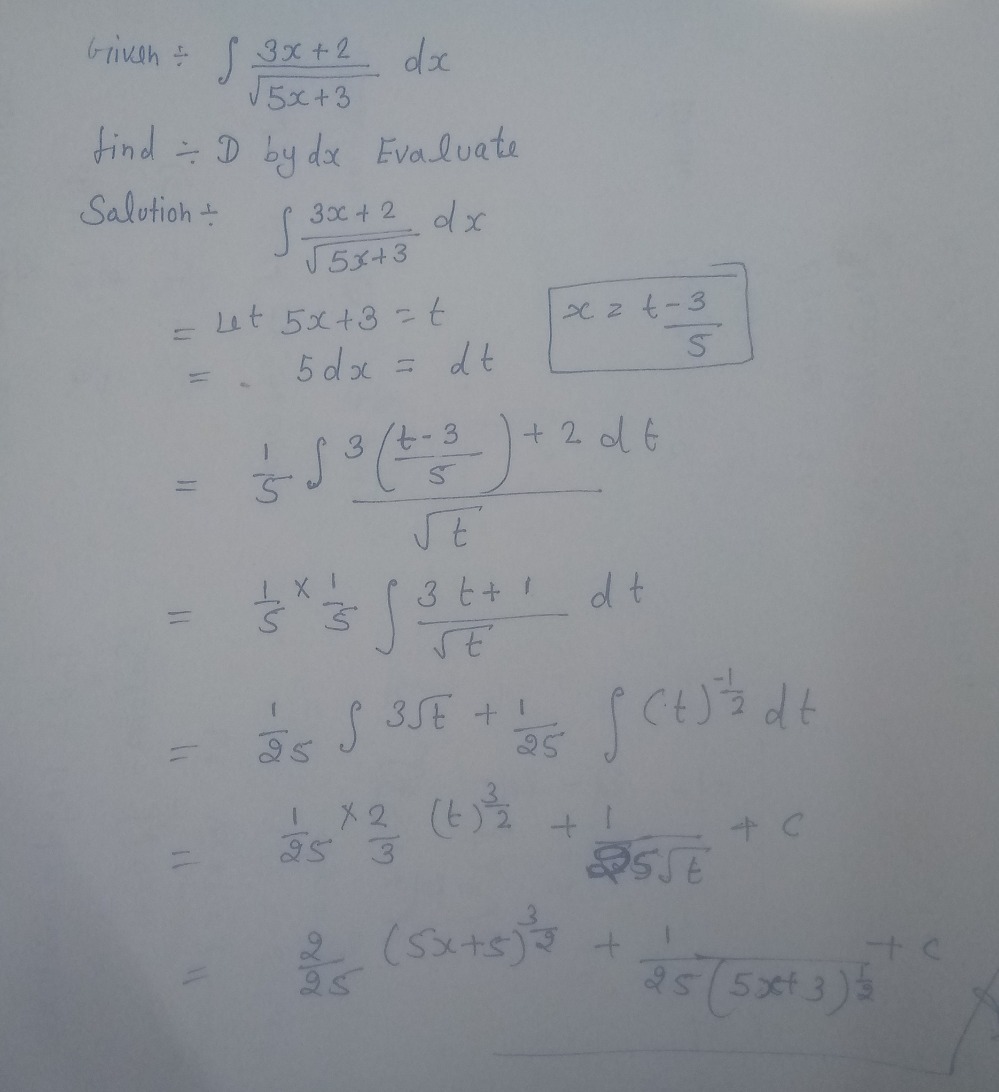 Given ÷ ∫ (3x + 2)/(√5x+3) dx
find ÷ D by dx Evaluate
Salution ÷ ∫ (3x + 2)/(√5x+3) dx
= Let 5x+3 = t
x = t-3/5
= . 5dx = dt
= 1/5 ∫ (3 (t-3/5) + 2 dt)/√t
= 1/5 × 1/5 ∫ (3t + 1)/√t dt
= 1/25 ∫ 3√t + 1/25 ∫ (t)^(-1/2) dt
= 1/25 × 2/3 (t)^(3/2) + 1/(25√t) + c
= 2/25 (5x+5)^(3/2) + 1/(25(5x+3)^(1/2)) + c